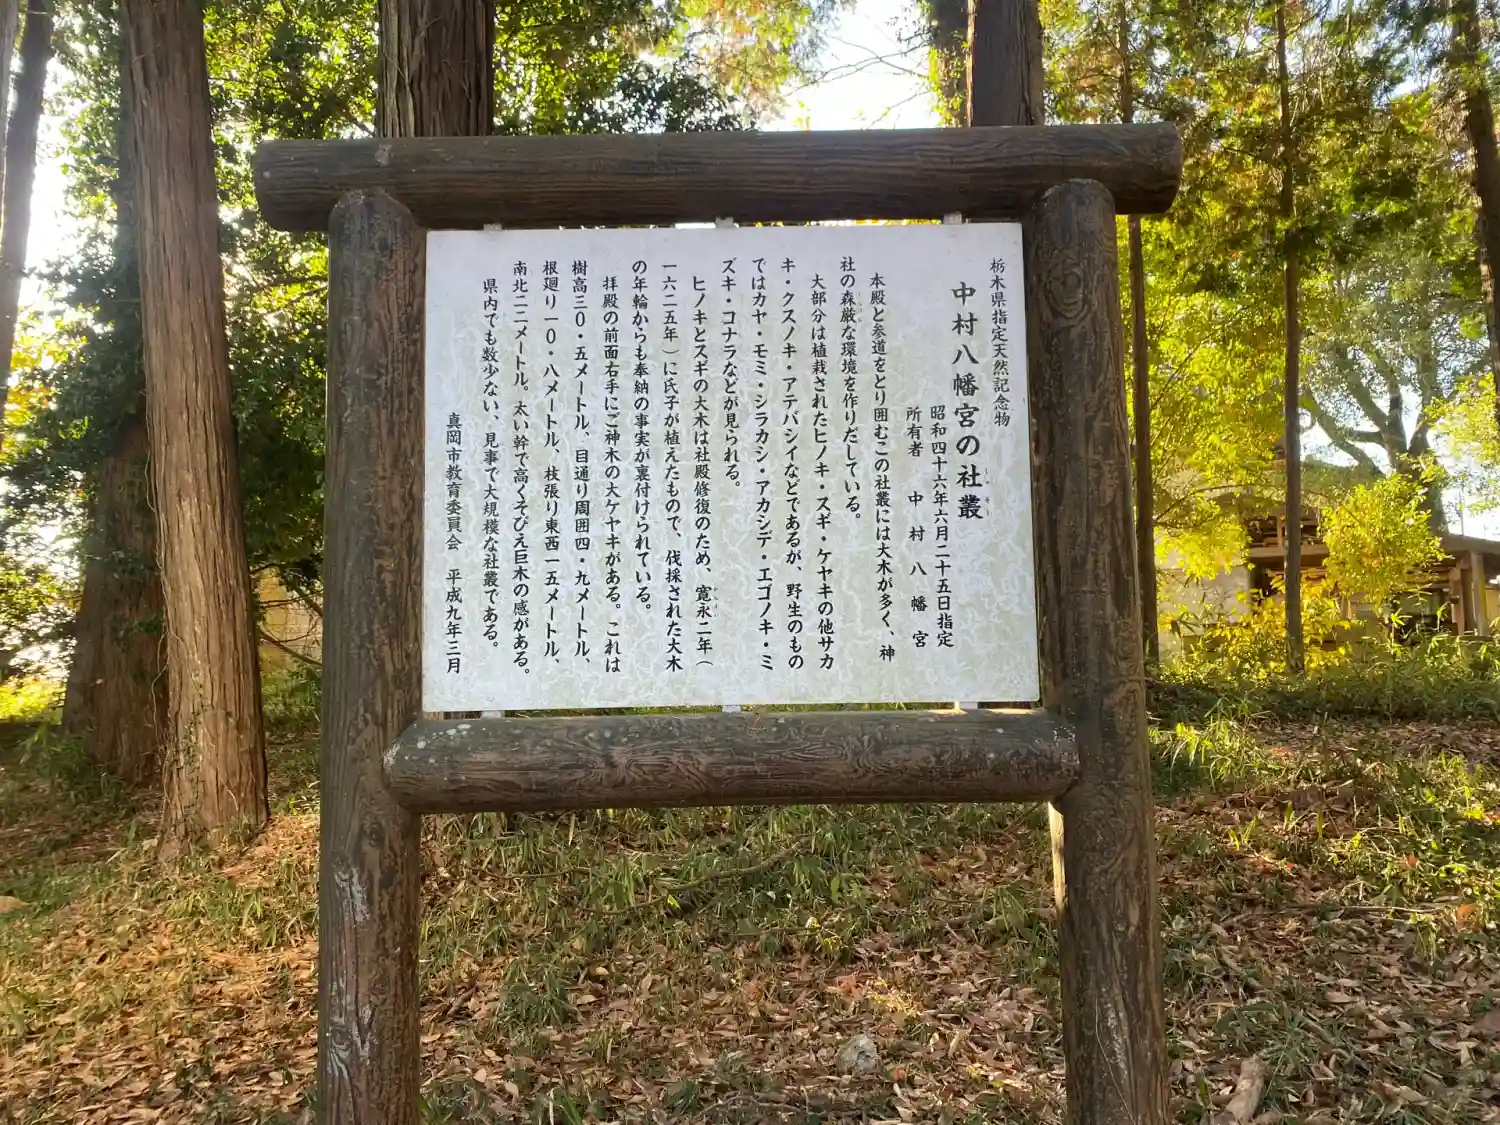 栃木県指定天然記念物
中村八幡宮の社叢
昭和四十六年六月二十五日指定
所有者　中村八幡宮
本殿と参道をとり囲むこの社叢には大木が多く、神
社の森厳な環境を作りだしている。
大部分は植栽されたヒノキ・スギ・ケヤキの他サカ
キ・クスノキ・アテバシイなどであるが、野生のもの
ではカヤ・モミ・シラカシ・アカシデ・エゴノキ・ミ
ズキ・コナラなどが見られる。
ヒノキとスギの大木は社殿修復のため、寛永二年（
一六二五年）に氏子が植えたもので、伐採された大木
の年輪からも奉納の事実が裏付けられている。
拝殿の前面右手にご神木の大ケヤキがある。これは
樹高三０・五メートル、目通り周囲四・九メートル、
根廻り一０・八メートル、枝張り東西一五メートル、
南北二二メートル。太い幹で高くそびえ巨木の感がある。
県内でも数少ない、見事で大規模な社叢である。
真岡市教育委員会　平成九年三月